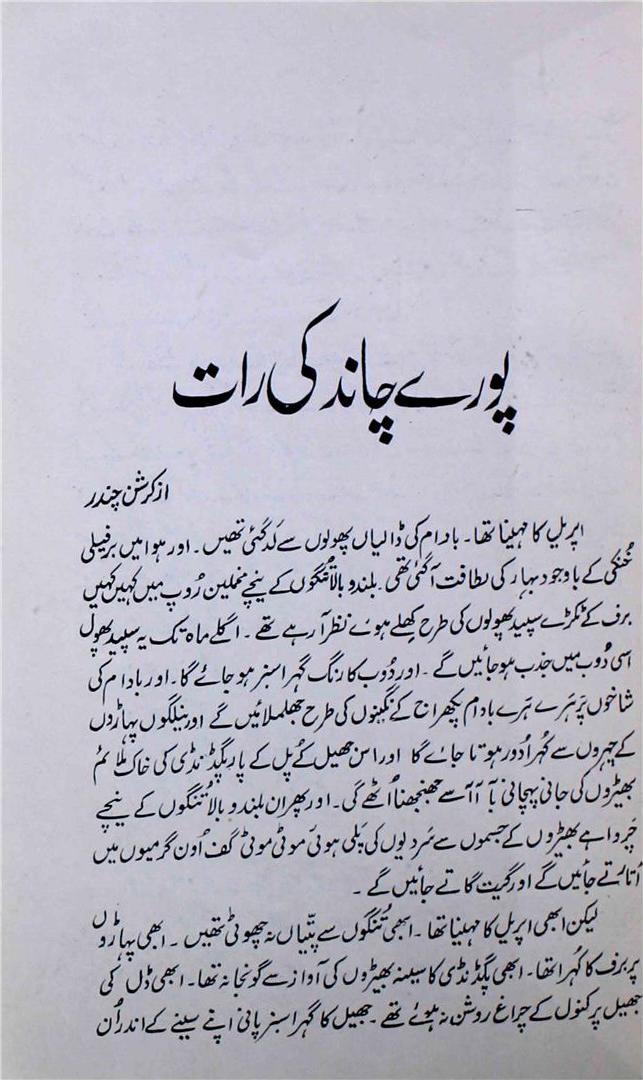 پورے چاند کی رات
از کرشن چندر
اپریل کا مہینا تھا۔ بادام کی ڈالیاں پھولوں سے لَد گئی تھیں۔ اور ہوا میں برفیلی
خُنکی کے باوجود بہار کی لطافت آگئی تھی۔ بلند و بالا تُنگوں کے نیچے مخملین رُوپ میں کہیں کہیں
برف کے ٹکڑے سپید پھولوں کی طرح کھلے ہوئے نظر آرہے تھے۔ اگلے ماہ تک یہ سپید پھول
اسی دُوب میں جذب ہوجائیں گے۔ اور دُوب کا رنگ گہرا سبز ہو جائے گا۔ اور بادام کی
شاخوں پر ہرے ہرے بادام پکھراج کے نگینوں کی طرح جھلملائیں گے اور نیلگوں پہاڑوں
کے چہروں سے کُہرا دُور ہوتا جائے گا اور اس جھیل کے پُل کے پار پگڈنڈی کی خاک ملائم
بھیڑوں کی جانی پہچانی بآ آ آ سے جھنجھنا اُٹھے گی۔ اور پھر ان بلند و بالا تُنگوں کے نیچے
چرواہے بھیڑوں کے جسموں سے سَردیوں کی پلی ہوئی موٹی موٹی گف اُون گرمیوں میں
اُتارتے جائیں گے اور گیت گاتے جائیں گے۔
لیکن ابھی اپریل کا مہینا تھا۔ ابھی تُنگوں سے پتّیاں نہ پھوٹی تھیں۔ ابھی پہاڑوں
پر برف کا کُہرا تھا۔ ابھی پگڈنڈی کا سینہ بھیڑوں کی آواز سے گونجا نہ تھا۔ ابھی ڈل کی
جھیل پر کنول کے چراغ روشن نہ ہوئے تھے۔ جھیل کا گہرا سبز پانی اپنے سینے کے اندر اُن